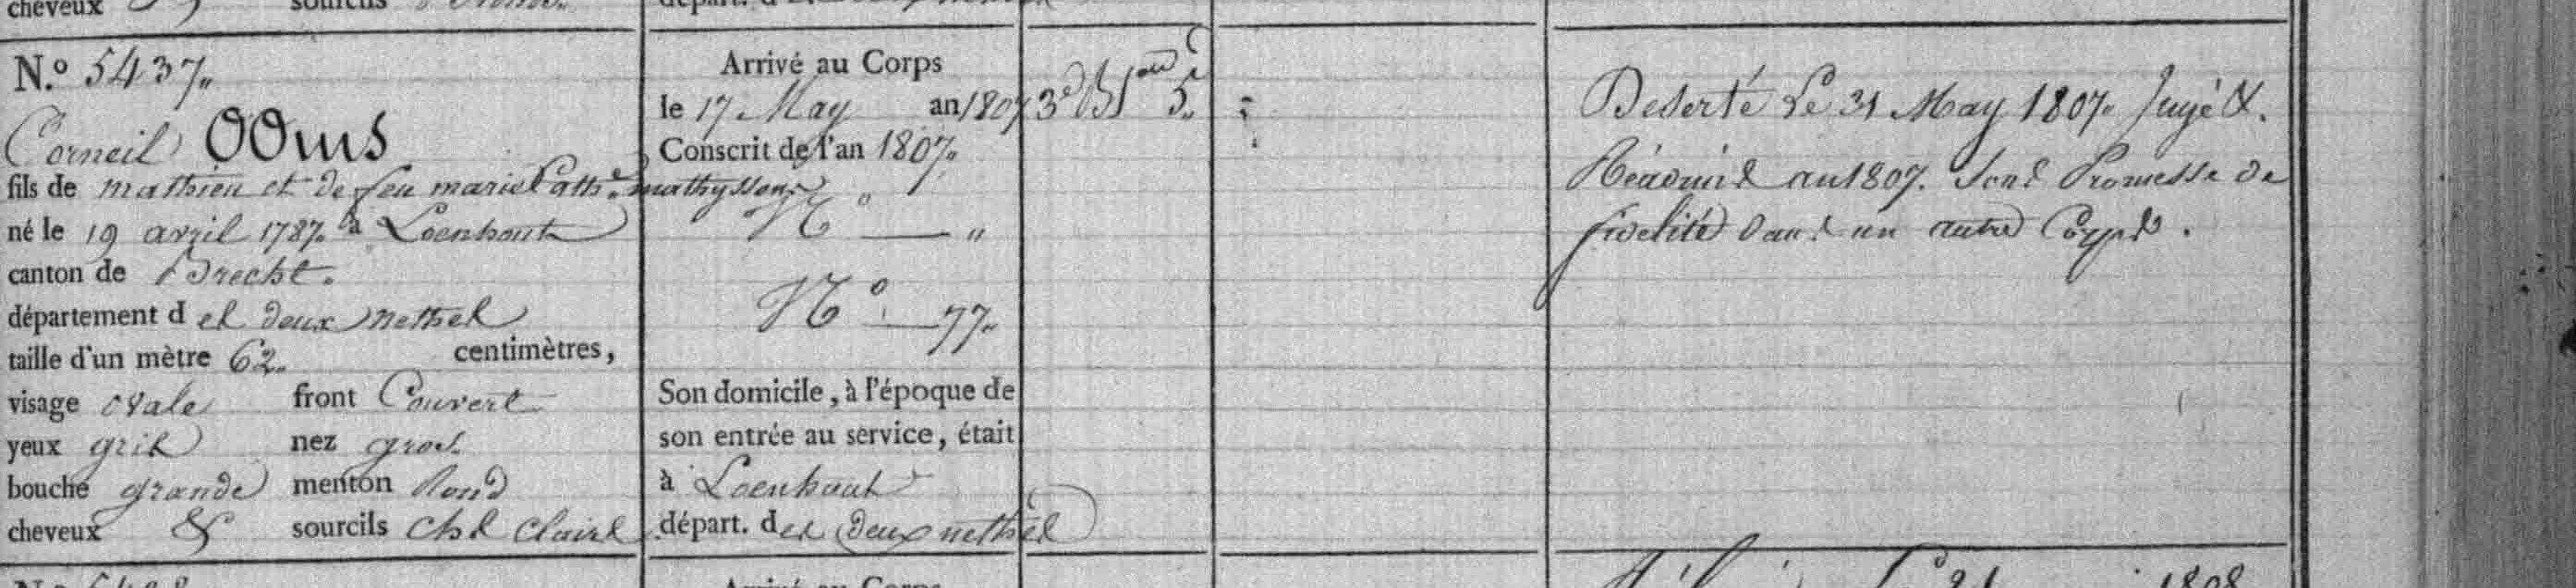 cheveux & sourcils
N.º 5437.
Corneil OOms
fils de mathieu et de feu marie Cathe. mathyssens
né le 19 avril 1787. à Loenhout
canton de Brecht.
département des deux nethes
taille d'un mètre 62. centimètres,
visage ovale front Couvert
yeux gris nez gros
bouche grande menton Rond
cheveux & sourcils chs clairs
Arrivé au Corps
le 17 May an 1807
Conscrit de l'an 1807.
Nº — "
Nº — 77.
Son domicile, à l'époque de
son entrée au service, était
à Loenhout
départ. des deux nethes
3e Bon 5e
Deserté Le 31 May 1807. Jugé &.
Réadmis au 1807. Sous Promesse de
fidelité Dans un autre Corps.
Arrivé au Corps